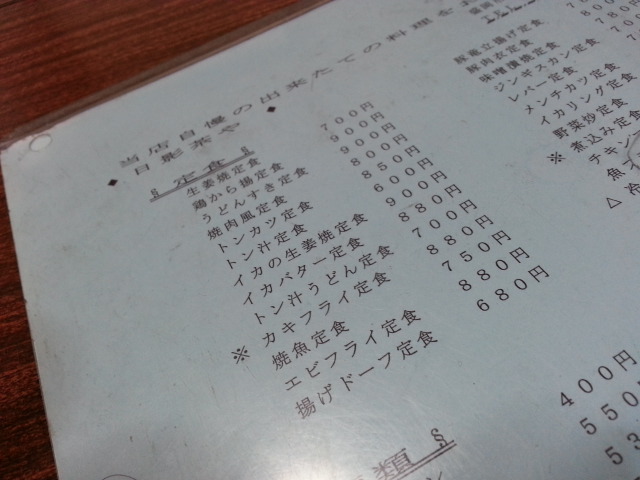 ◆ 当店自慢の出来たての料理を
◆ 日影茶や
§ 定食 §
生姜焼定食 700円
鶏から揚定食 900円
うどんすき定食 900円
焼肉風定食 800円
トンカツ定食 850円
トン汁定食 600円
イカの生姜焼定食 900円
イカバター定食 880円
トン汁うどん定食 700円
※ カキフライ定食 880円
焼魚定食 750円
エビフライ定食 880円
揚げドーフ定食 680円
立揚げ定食
豚肉衣定食
味噌漬焼定食
ジンギスカン定食
レバー定食
メンチカツ定食
イカリング定食
野菜炒定食
※ 煮込み定食
チキン
魚
△ 冷
類 §
400円
550
53